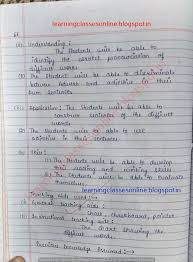 learningclassesonline.blogspot.in
(ii) Understanding :
(1) The Students will be able to
identify the correct pronunciation of
difficult words.
(2) The Student will be able to discriminate
between adverb and adjective in their
own sentences
(iii) Application : The Students will be able to
construct sentences of the difficult
words.
(2) The Students will be able to use
adjective in their sentences.
Skill :
(1) The Students will be able to develop
their reading and writing skills
The students will be able to evaluate
themselves
learningclassesonline.blogspot.in
Teaching Aids used :
(i) General teaching aids :
chalkboard, pointer
(ii) Instructional teaching aids :
The chart showing the
difficult words.
Previous knowledge Assumed :→